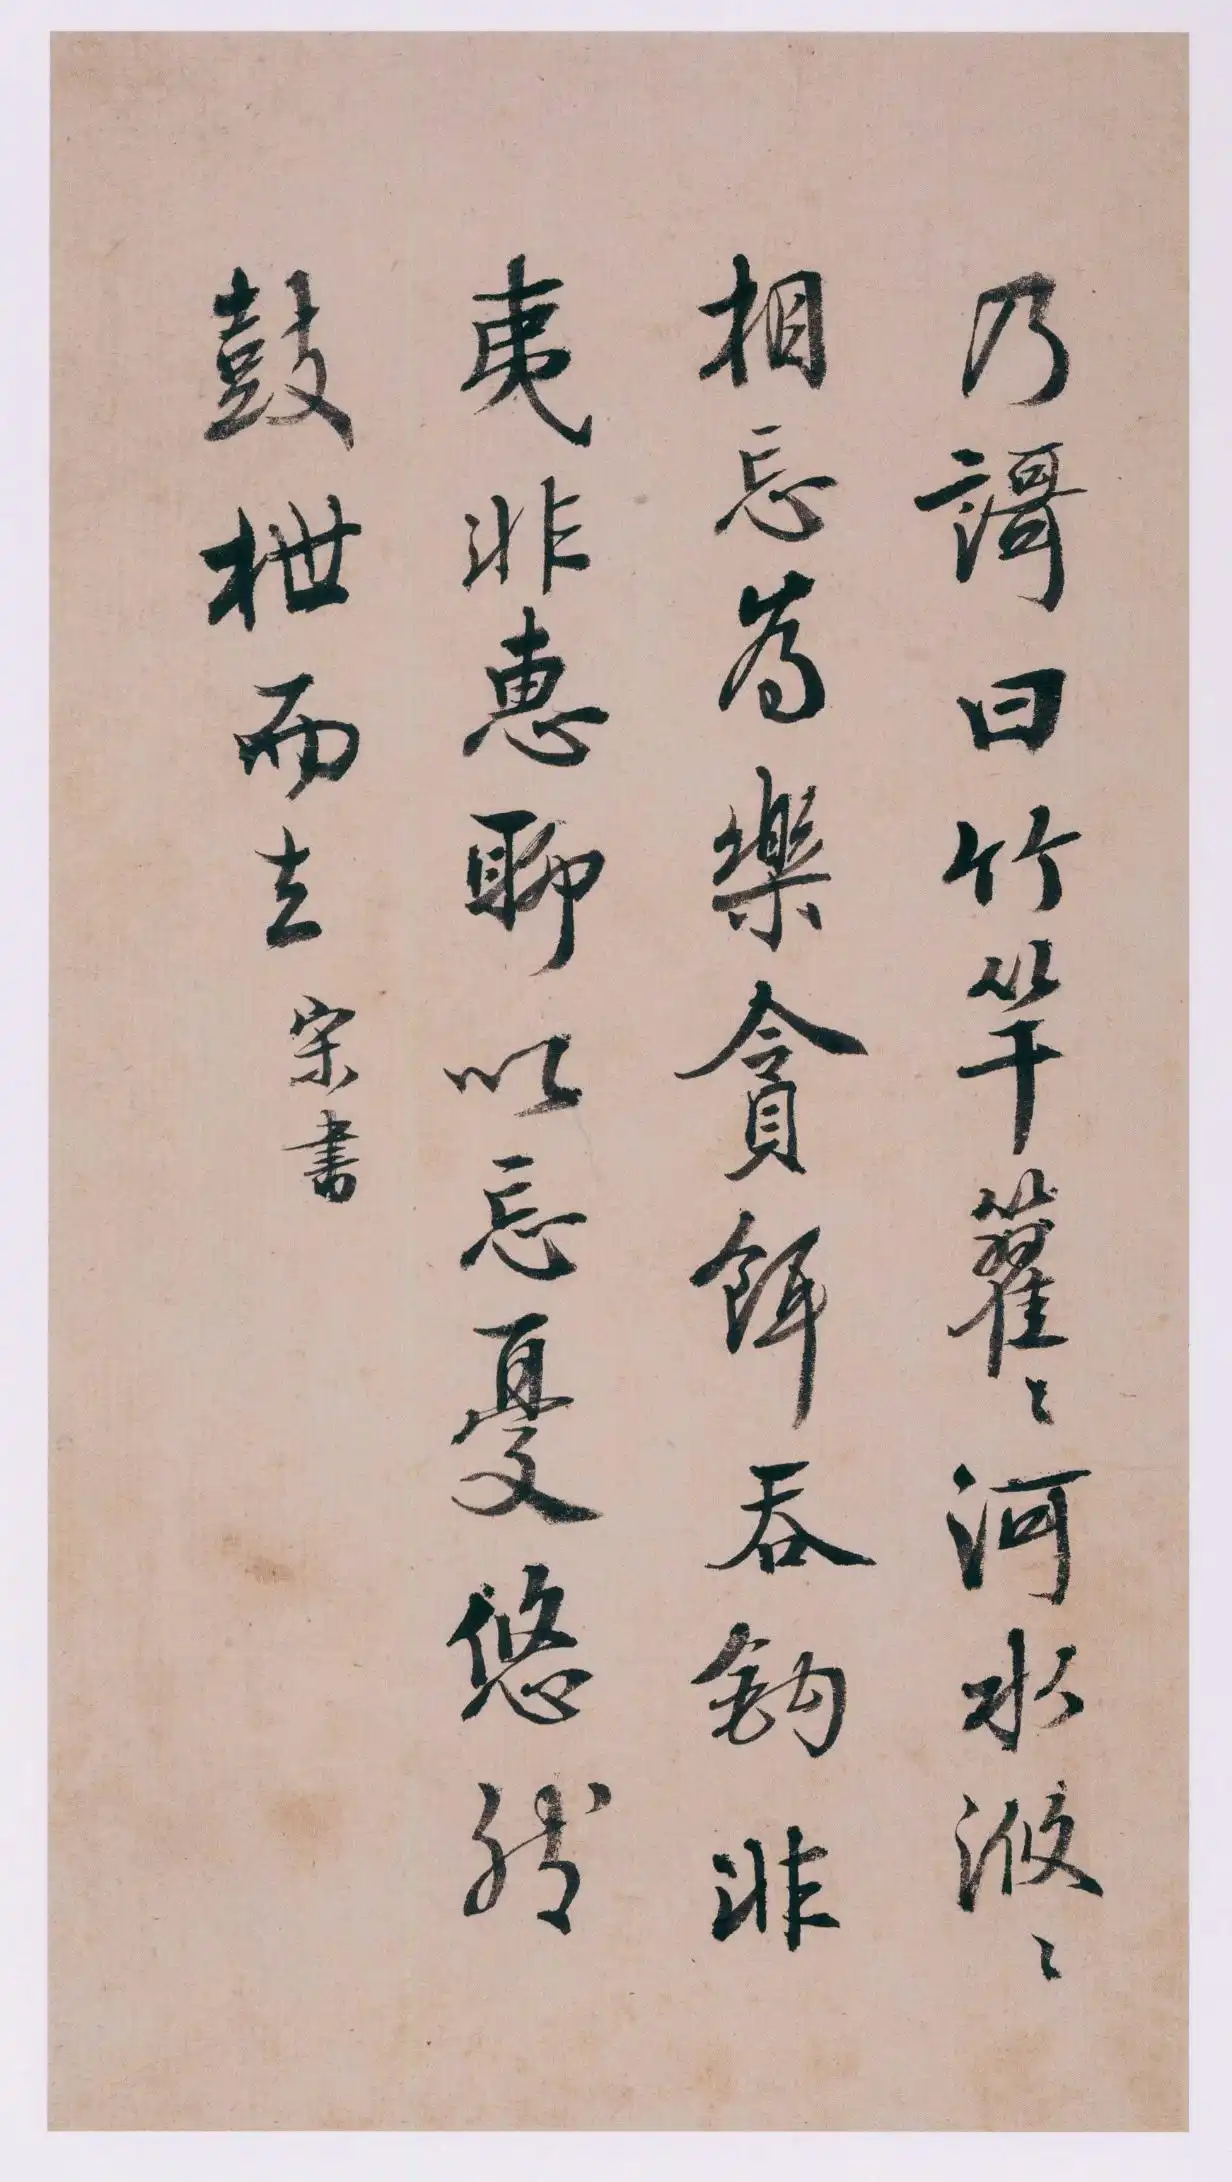 乃謌曰竹竿籊〻河水浟〻
相忘為樂貪餌吞鈎非
夷非惠聊以忘憂悠然
鼓枻而去 宋書